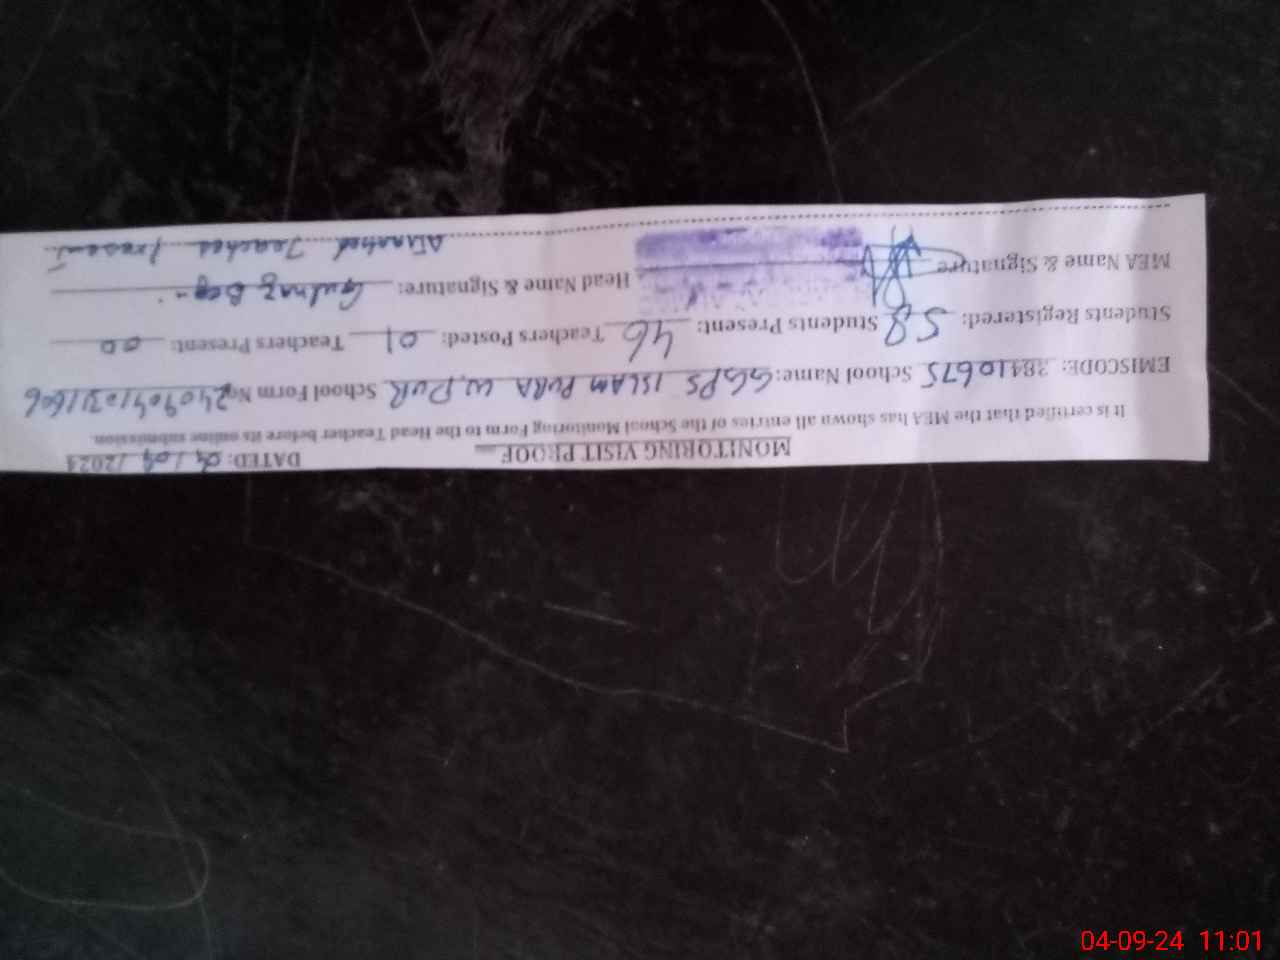 MONITORING VISIT PROOF DATED: 04/09/2024
It is certified that the MEA has shown all entries of the School Monitoring Form to the Head Teacher before its online submission.
EMISCODE: 38410675 School Name: GGPS ISLAM PURA W.PUR School Form No. 2409041031606
Students Registered: 58 Students Present: 46 Teachers Posted: 01 Teachers Present: 00
MEA Name & Signature Head Name & Signature: Gulnaz
Attached Teacher Present
04-09-24 11:01